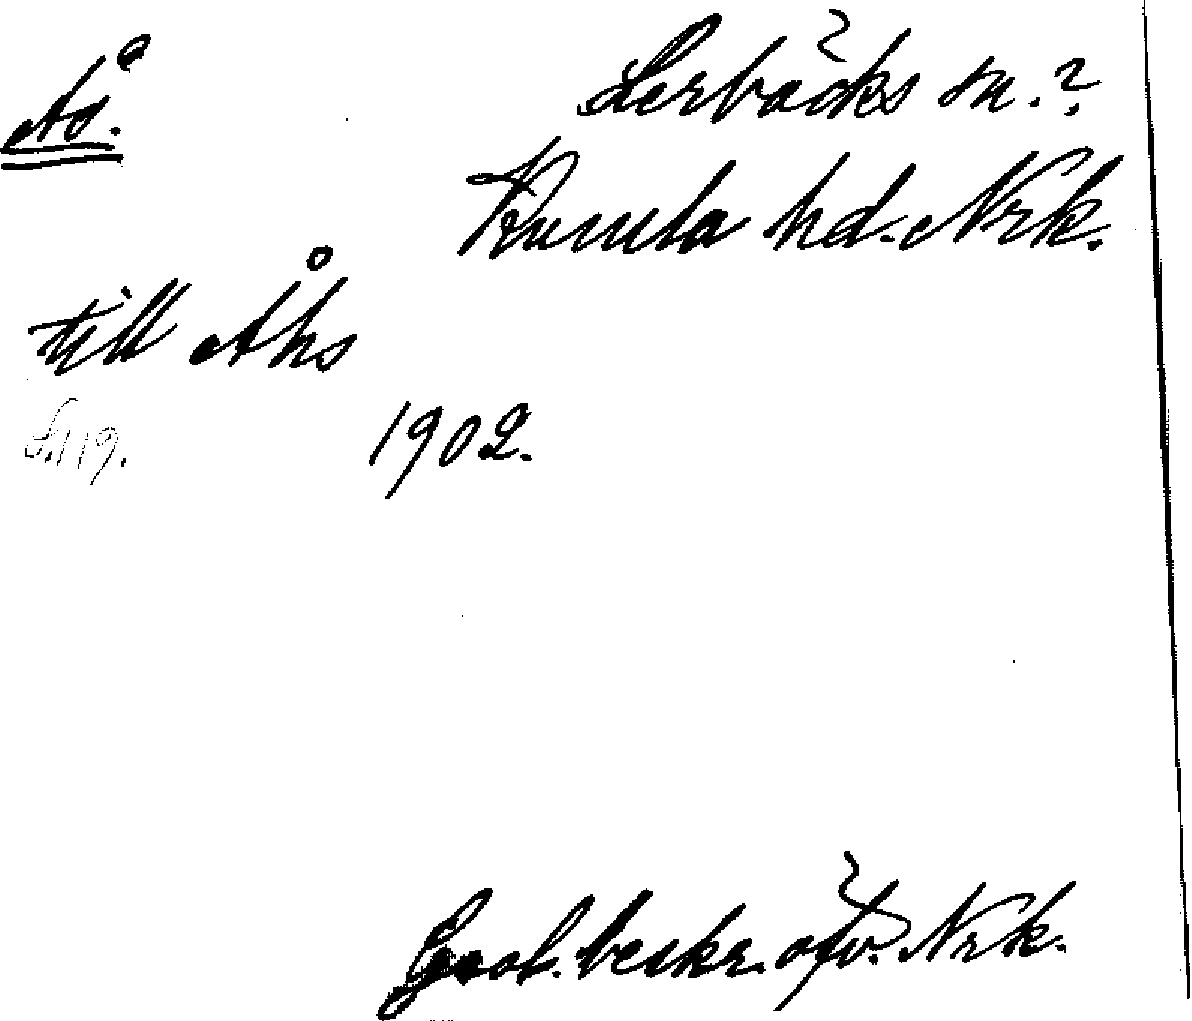 Ås.
Lerbäcks sn.?
Kumla hd. Nrk.
till Åhs
S. 119.
1902.
Geol. beskr. öfv. Nrk.